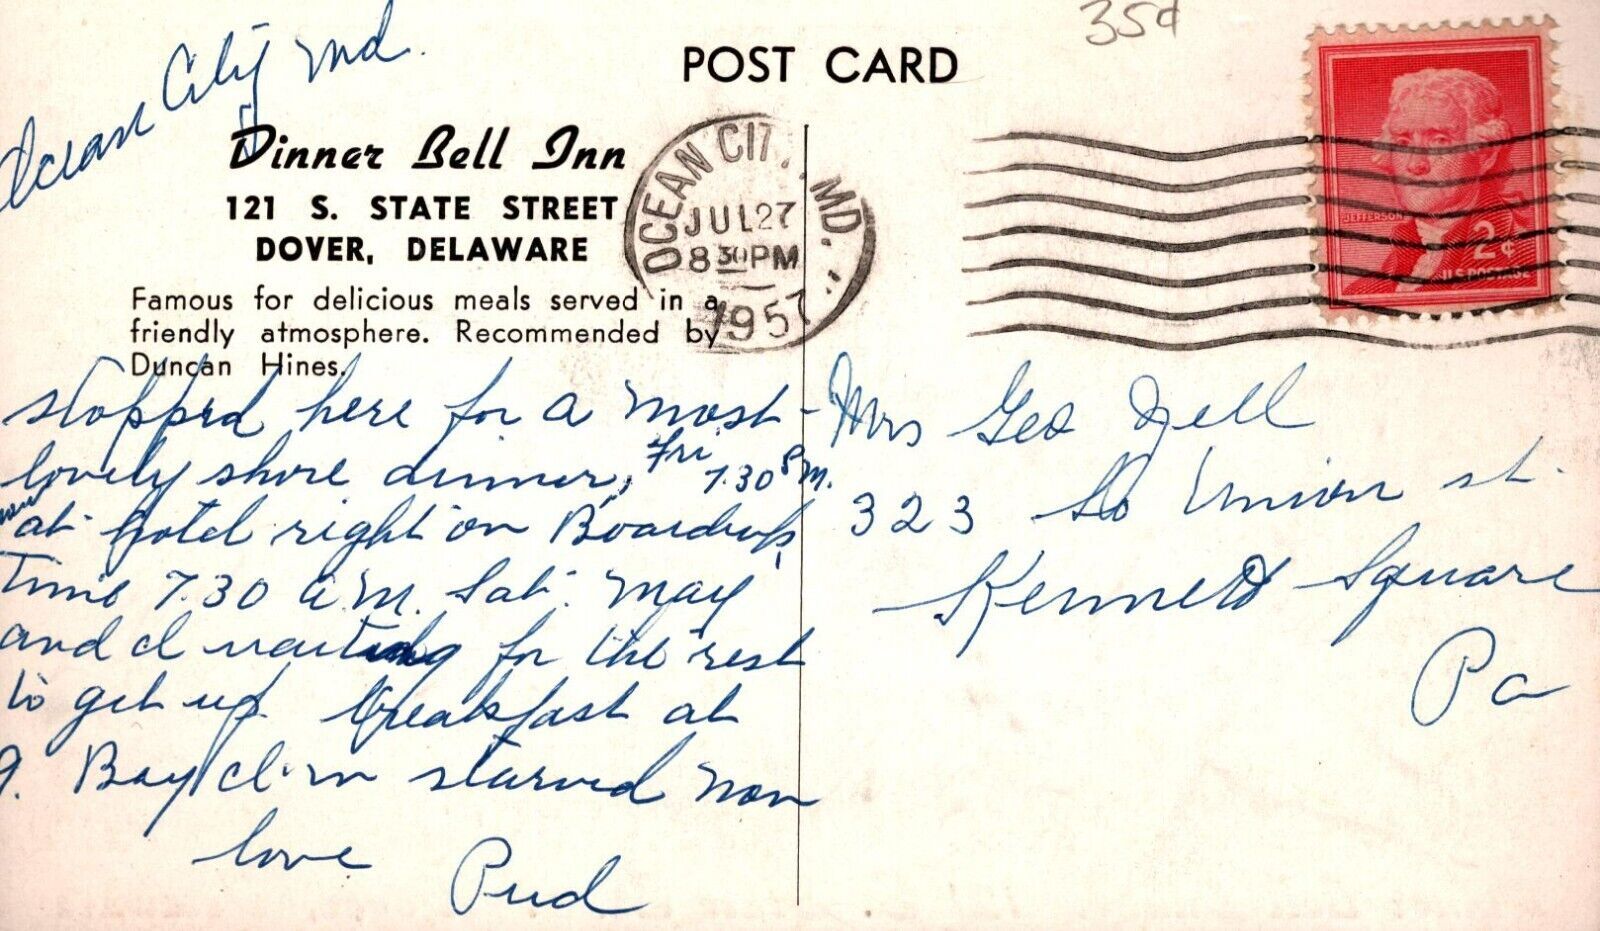 35¢
POST CARD
Ocean City Md.
Dinner Bell Inn
121 S. STATE STREET
DOVER, DELAWARE
Famous for delicious meals served in a
friendly atmosphere. Recommended by
Duncan Hines.
OCEAN CIT, MD.
JUL 27
8 30 PM
1957
JEFFERSON
2¢
U.S. POSTAGE
stopped here for a most
lovely shore dinner, Fri 7.30 P.M.
now
at hotel right on Boardwk,
Time 7.30 a.m. Sat. May
and I waiting for the rest
to get up. breakfast at
9. Boy I'm starved now
love Pud
Mrs Geo Zell
323 So Union st.
Kennett Square
Pa